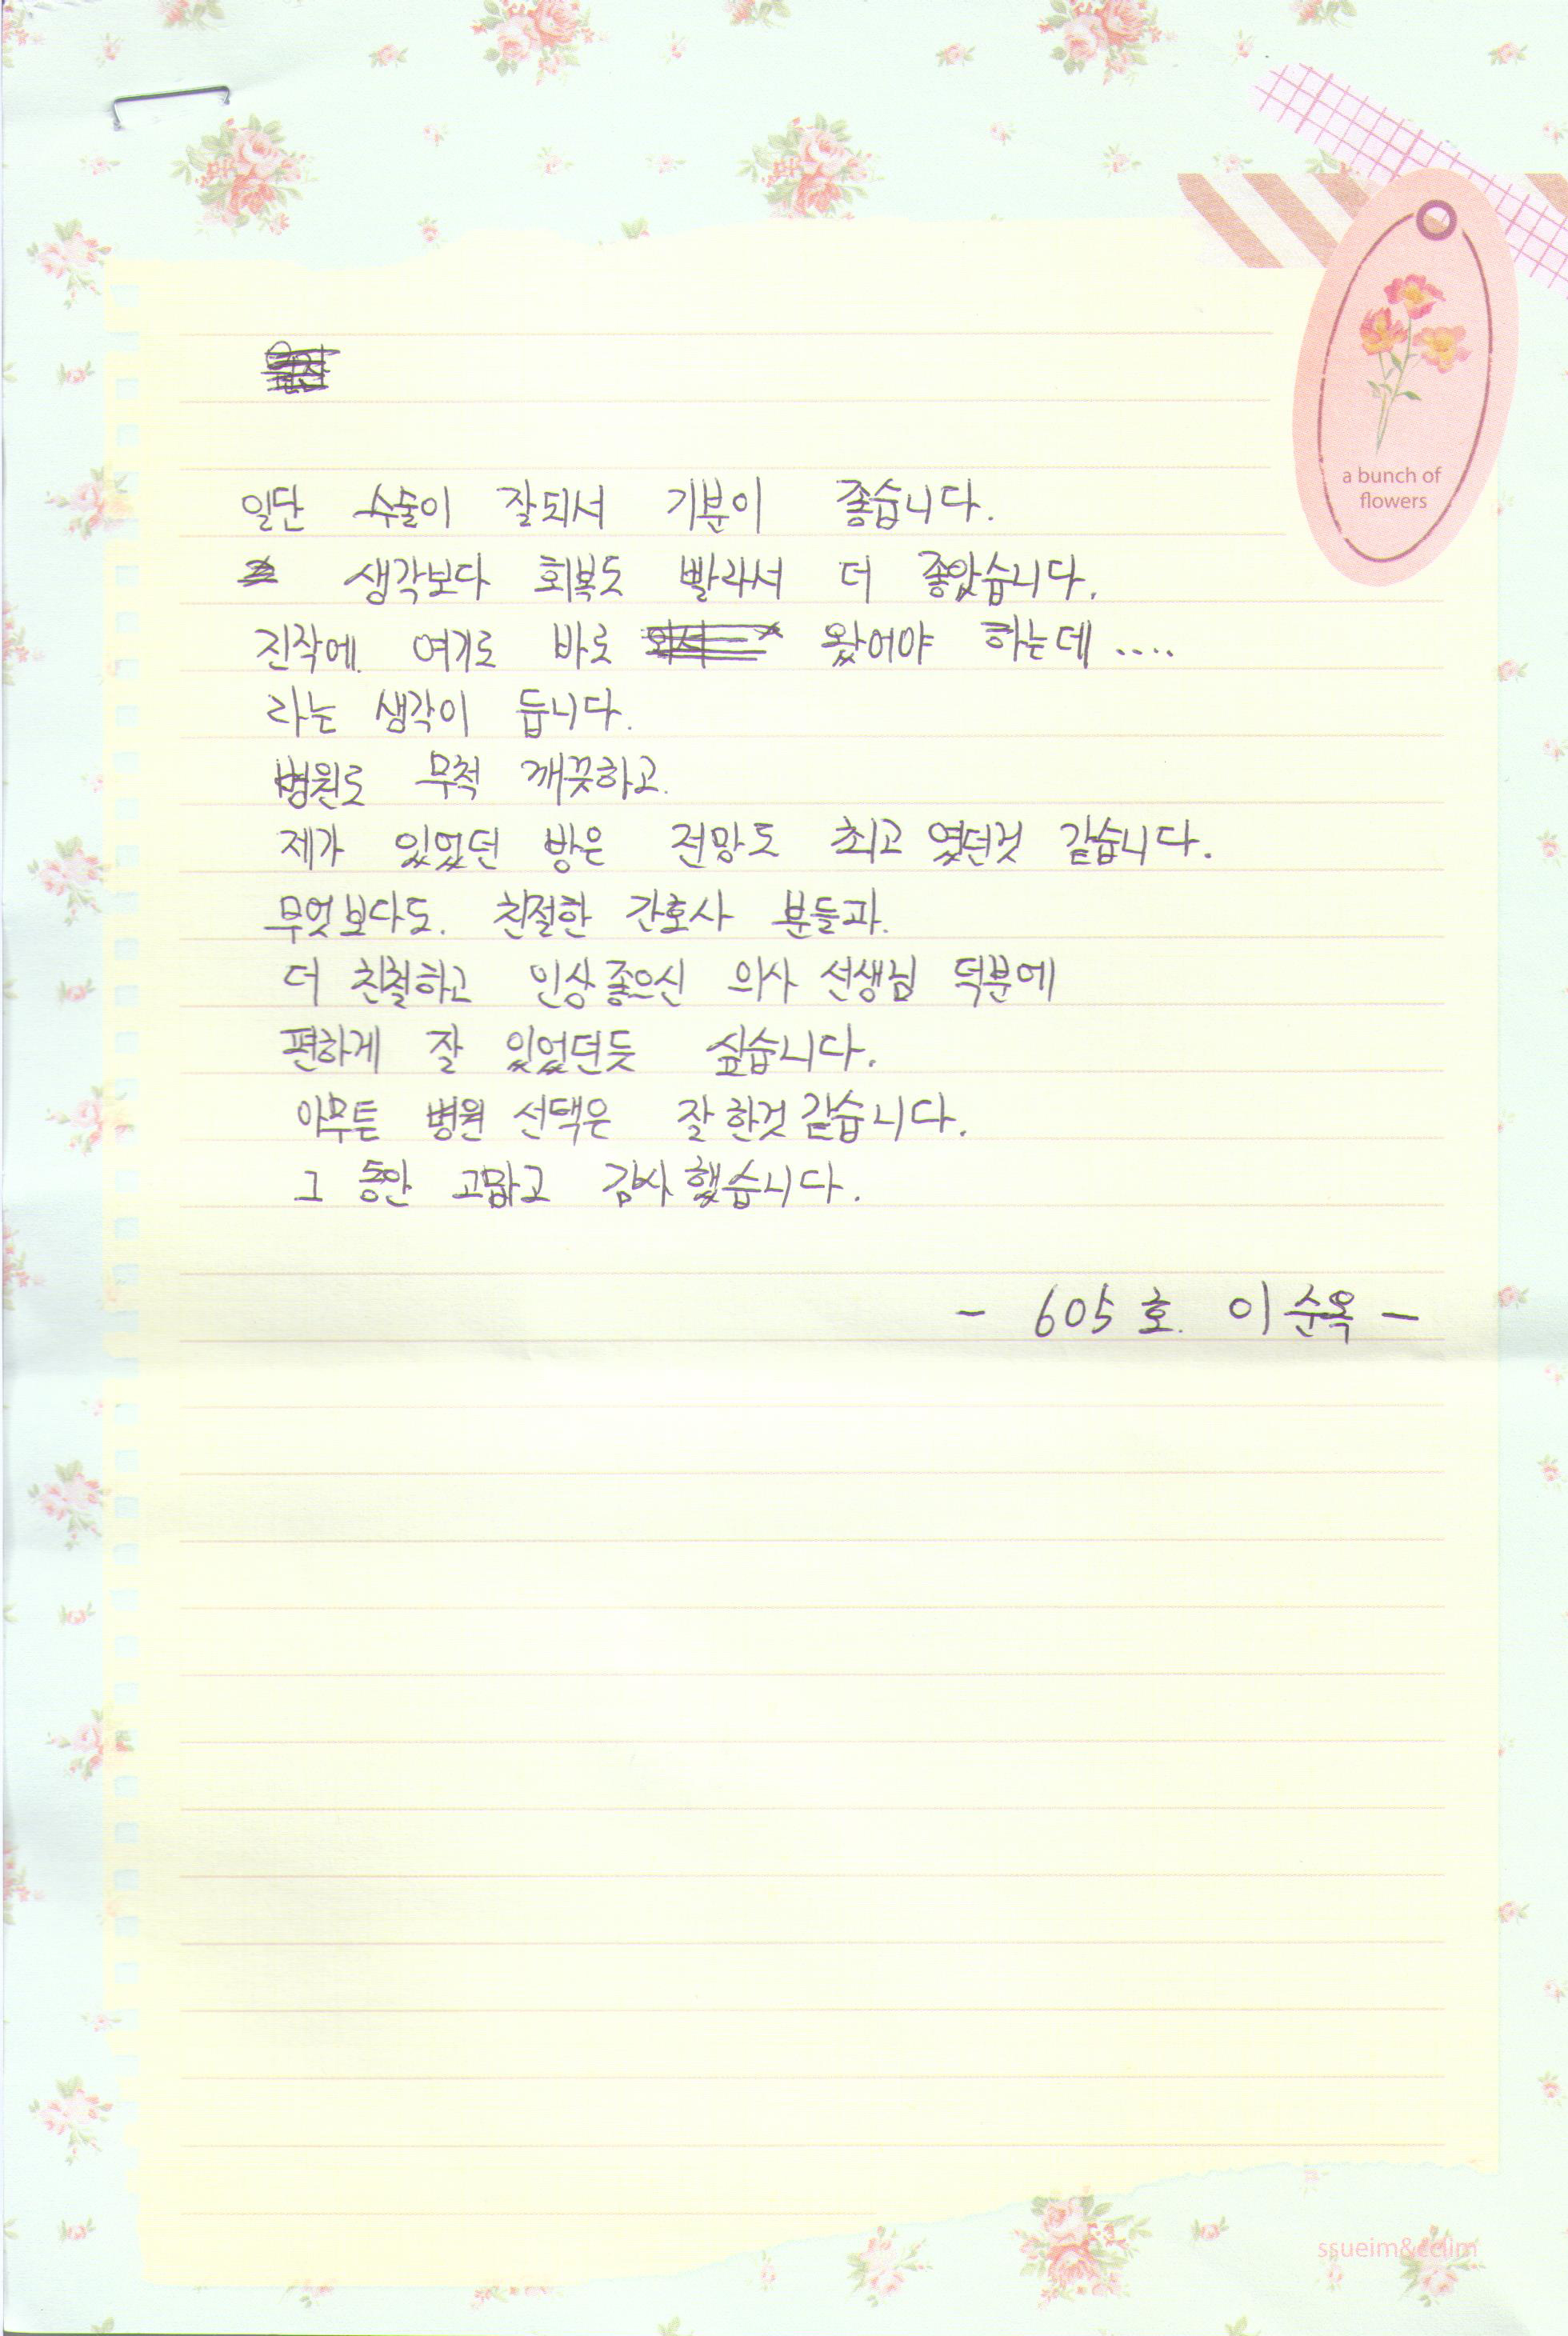 a bunch of
flowers
일단 수술이 잘되서 기분이 좋습니다.
생각보다 회복도 빨라서 더 좋았습니다.
진작에. 여기로 바로 왔어야 하는데 ....
라는 생각이 듭니다.
병원도 무척 깨끗하고.
제가 있었던 방은 전망도 최고 였던것 같습니다.
무엇보다도. 친절한 간호사 분들과.
더 친철하고 인상좋으신 의사 선생님 덕분에
편하게 잘 있었던듯 싶습니다.
아무튼 병원 선택은 잘한것 같습니다.
그 동안 고맙고 감사했습니다.
- 605호. 이순옥 -